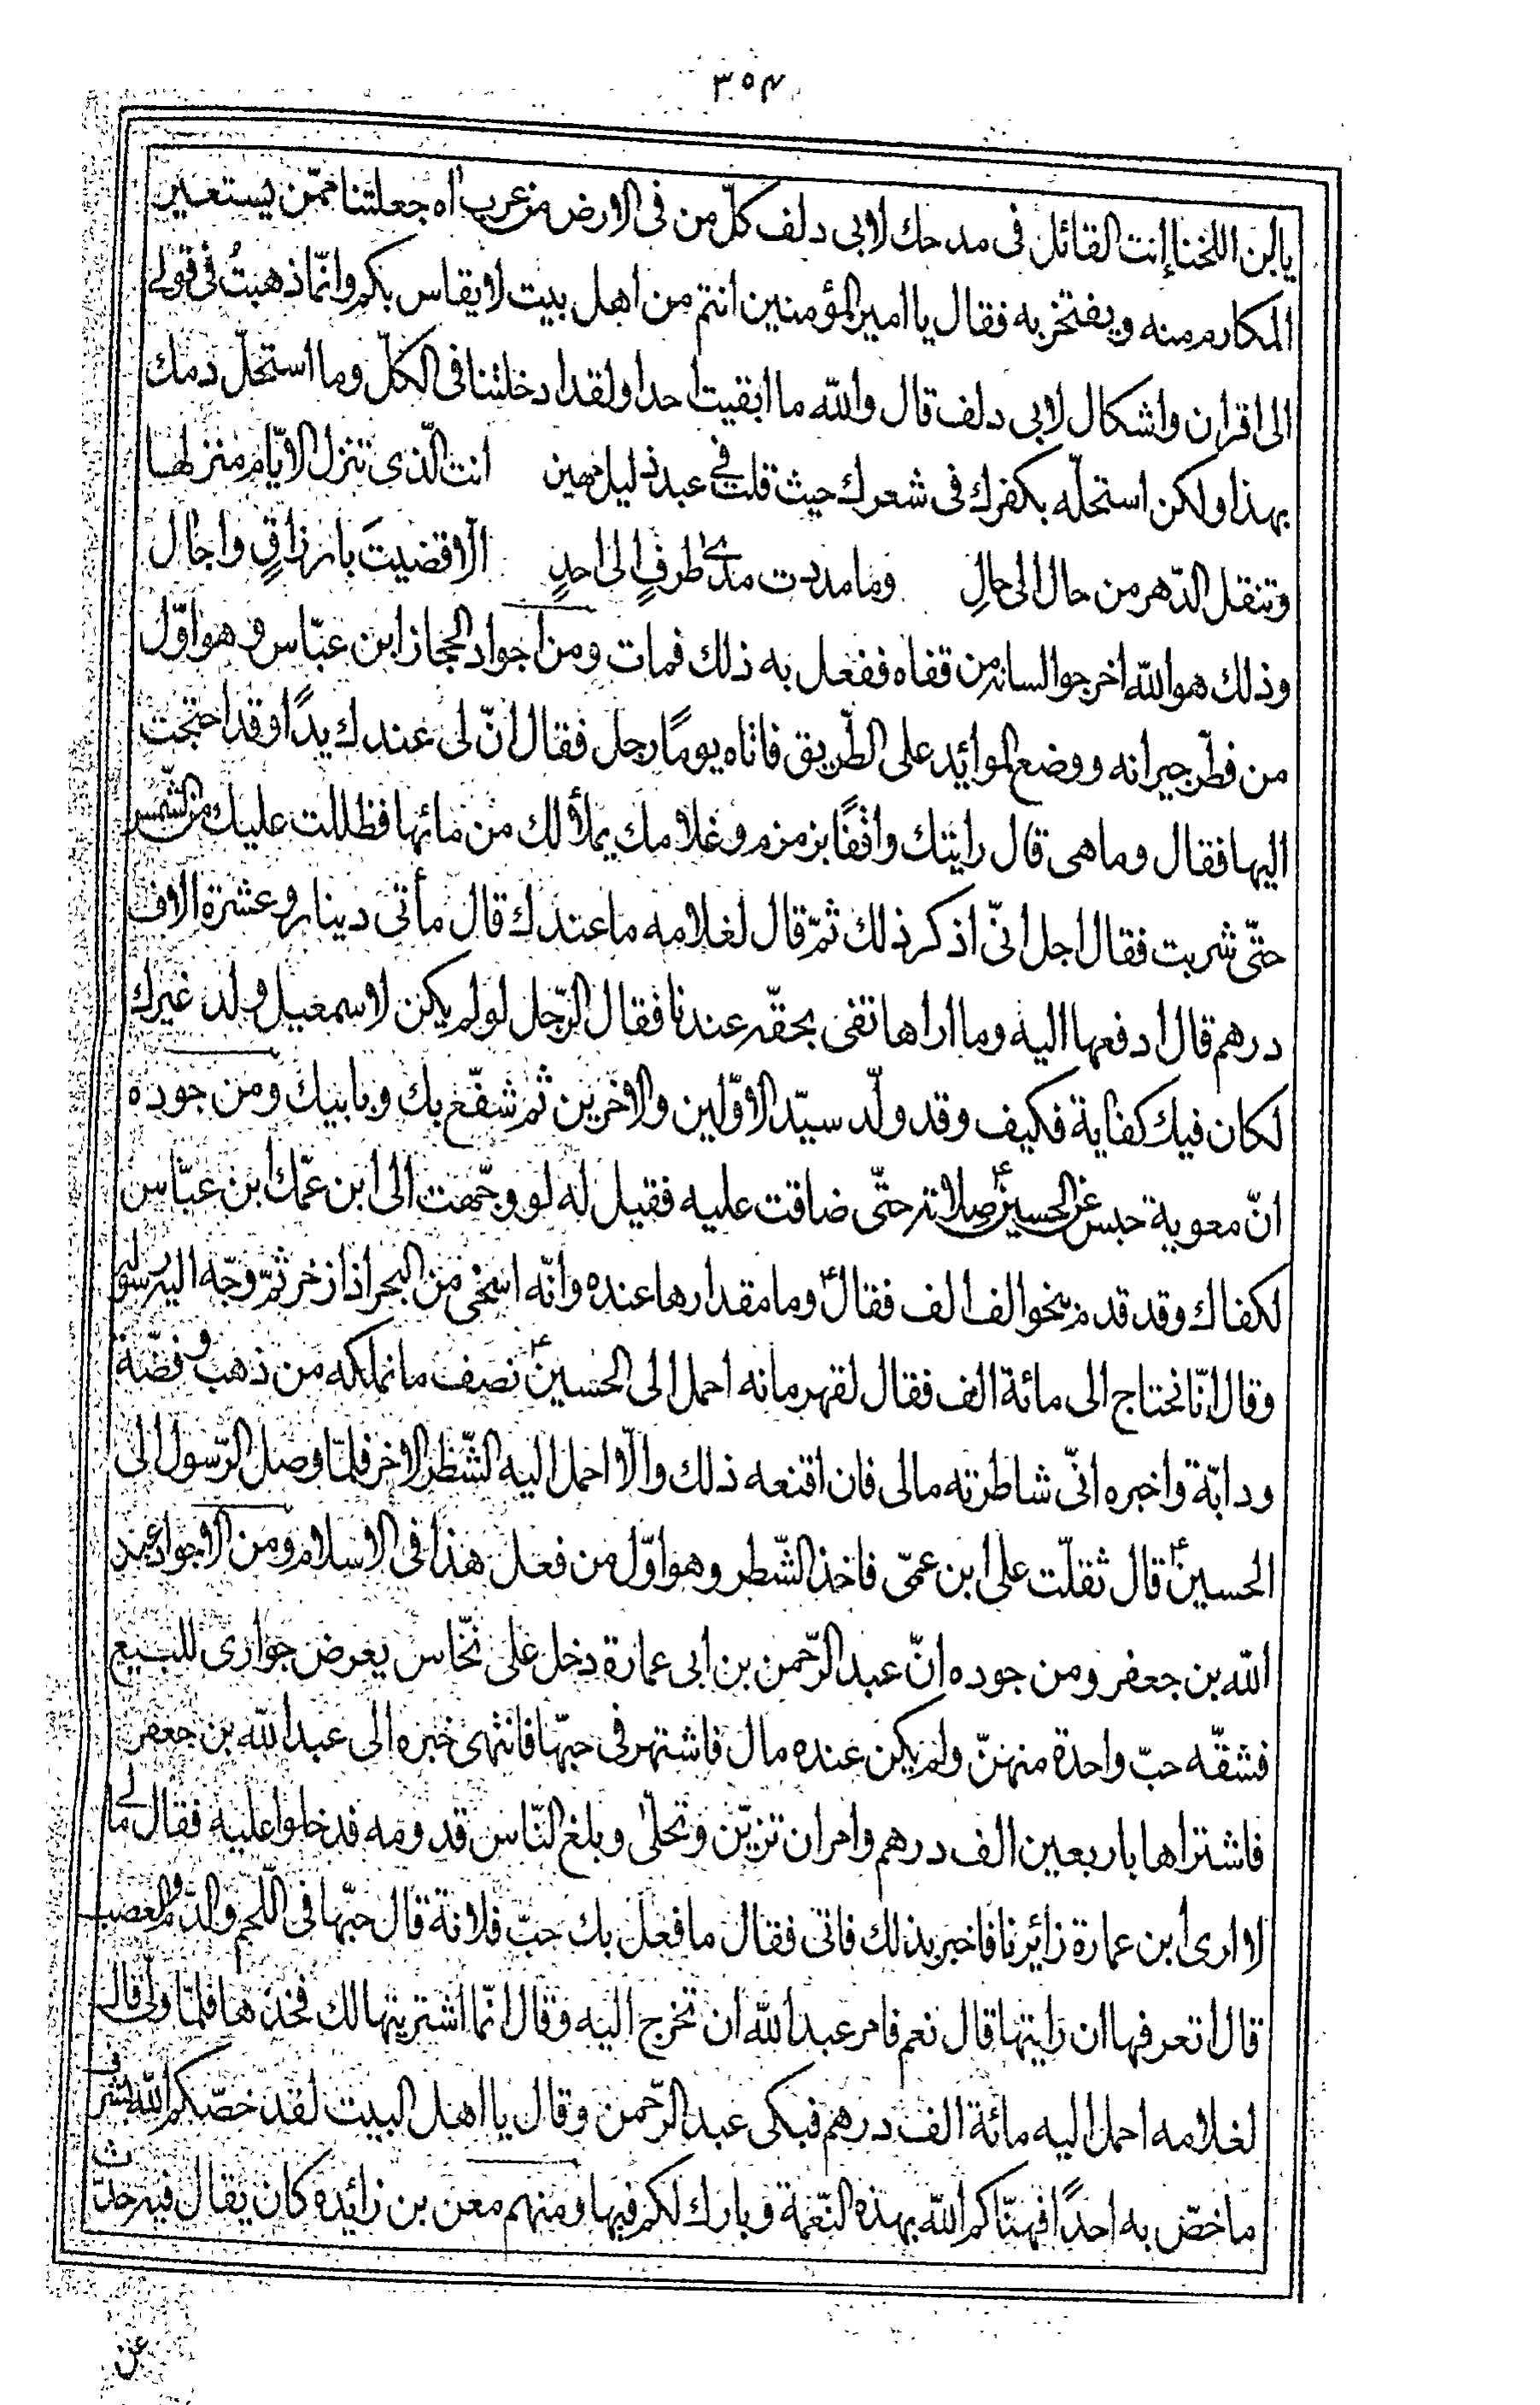 ٣٥٤
يابن اللخنا إنت القائل فى مدحك لابى دلف كلّ من فى الارض من عرب اه جعلتنا ممّن يستعير
المكارم منه ويفتخر به فقال يا امير المؤمنين انتم من اهل بيت لا يقاس بكم وانّما ذهبتُ فى قولى
الى اقران واشكال لابى دلف قال والله ما ابقيت احدا ولقد ادخلتنا فى الكلّ وما استحلّ دمك
بهذا ولكن استحلّه بكفرك فى شعرك حيث قلت فى عبد ذليل مهين انت الّذى تنزل الايّام منزلها
وتنقل الدّهر من حال الى حالِ وما مددت مدى طرفٍ الى احدٍ الّا قضيتَ بارزاقٍ واجال
وذلك هو الله اخرجوا لسانه من قفاه ففعل به ذلك فمات ومن اجواد الحجاز ابن عبّاس وهو اوّل
من فطّر جيرانه ووضع الموائد على الطّريق فاتاه يومًا رجل فقال انّ لى عندك يدًا وقد احتجت
اليها فقال وما هى قال رايتك واقفًا بزمزم وغلامك يملأ لك من مائها فظللت عليك من الشّمس
حتّى شربت فقال اجل انّى اذكر ذلك ثمّ قال لغلامه ما عندك قال مأتى دينار وعشرة الاف
درهم قال ادفعها اليه وما اراها تفى بحقّه عندنا فقال الرّجل لو لم يكن لاسمعيل ولد غيرك
لكان فيك كفاية فكيف وقد ولّد سيّد الاوّلين والاخرين ثم شفّع بك وبابيك ومن جوده
انّ معوية حبس عن الحسين ع صلاته حتّى ضاقت عليه فقيل له لو وجّهت الى ابن عمّك ابن عبّاس
لكفاك وقد قدم بنحو الف الف فقال ع وما مقدارها عنده وانّه اسخى من البحر اذا زخر ثمّ وجّه اليه رسوله
وقال انّا نحتاج الى مائة الف فقال لقهرمانه احمل الى الحسين ع نصف ما نملكه من ذهب وفضّة
ودابّة واخبره انّى شاطرته مالى فان اقنعه ذلك والّا احمل اليه الشّطر الاخر فلمّا وصل الرّسول الى
الحسين ع قال ثقلّت على ابن عمّى فاخذ الشّطر وهو اوّل من فعل هذا فى الاسلام ومن الاجواد عبد
الله بن جعفر ومن جوده انّ عبد الرّحمن بن ابى عمارة دخل على نخّاس يعرض جوارى للبيع
فشقّه حبّ واحدة منهنّ ولم يكن عنده مال فاشتهر فى حبّها فانتهى خبره الى عبد الله بن جعفر
فاشتراها باربعين الف درهم وامر ان تزيّن وتحلّى وبلغ النّاس قدومه فدخلوا عليه فقال مالى
لا ارى ابن عمارة زائرنا فاخبر بذلك فاتى فقال ما فعل بك حبّ فلانة قال حبّها فى اللّحم والدّم والعصب
قال اتعرفها ان رايتها قال نعم فامر عبد الله ان تخرج اليه وقال انّما اشتريتها لك فخذها فلمّا ولّى قال
لغلامه احمل اليه مائة الف درهم فبكى عبد الرّحمن وقال يا اهل البيت لقد خصّكم الله بشرف
ما خصّ به احدًا فهنّاكم الله بهذه النّعمة وبارك لكم فيها ومنهم معن بن زائدة كان يقال فيه حدّث
عن